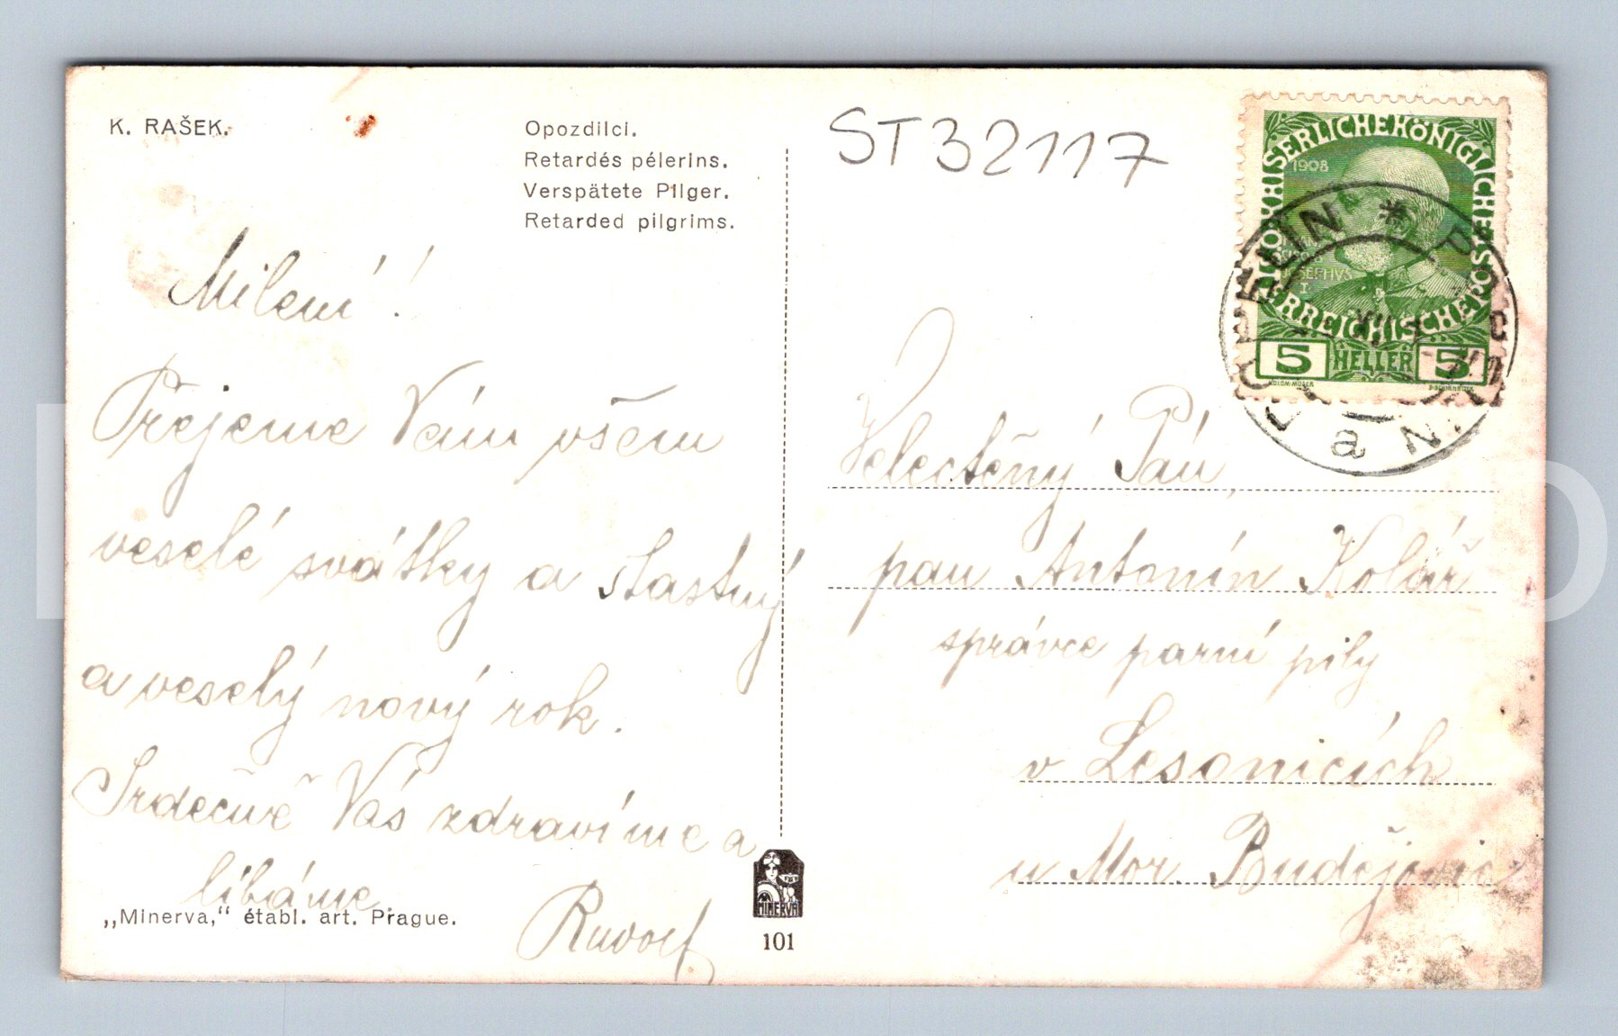 K. RAŠEK.
Opozdilci.
Retardés pélerins.
Verspätete Pilger.
Retarded pilgrims.
ST32117
Milení!
Přejeme Vám všem
veselé svátky a šťastný
a veselý nový rok.
Srdečně Vás zdravíme a
líbáme
„Minerva,“ établ. art. Prague.
MINERVA
101
KAISERLICHE KÖNIGLICHE ÖSTERREICHISCHE POST
1908
5 HELLER 5
a
Velectěný Pán,
pan Antonín Kolář
správce parní pily
v Lesonicích
u Mor. Budějovic